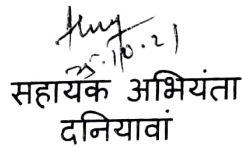 25.10.21
सहायक अभियंता
दनियावां